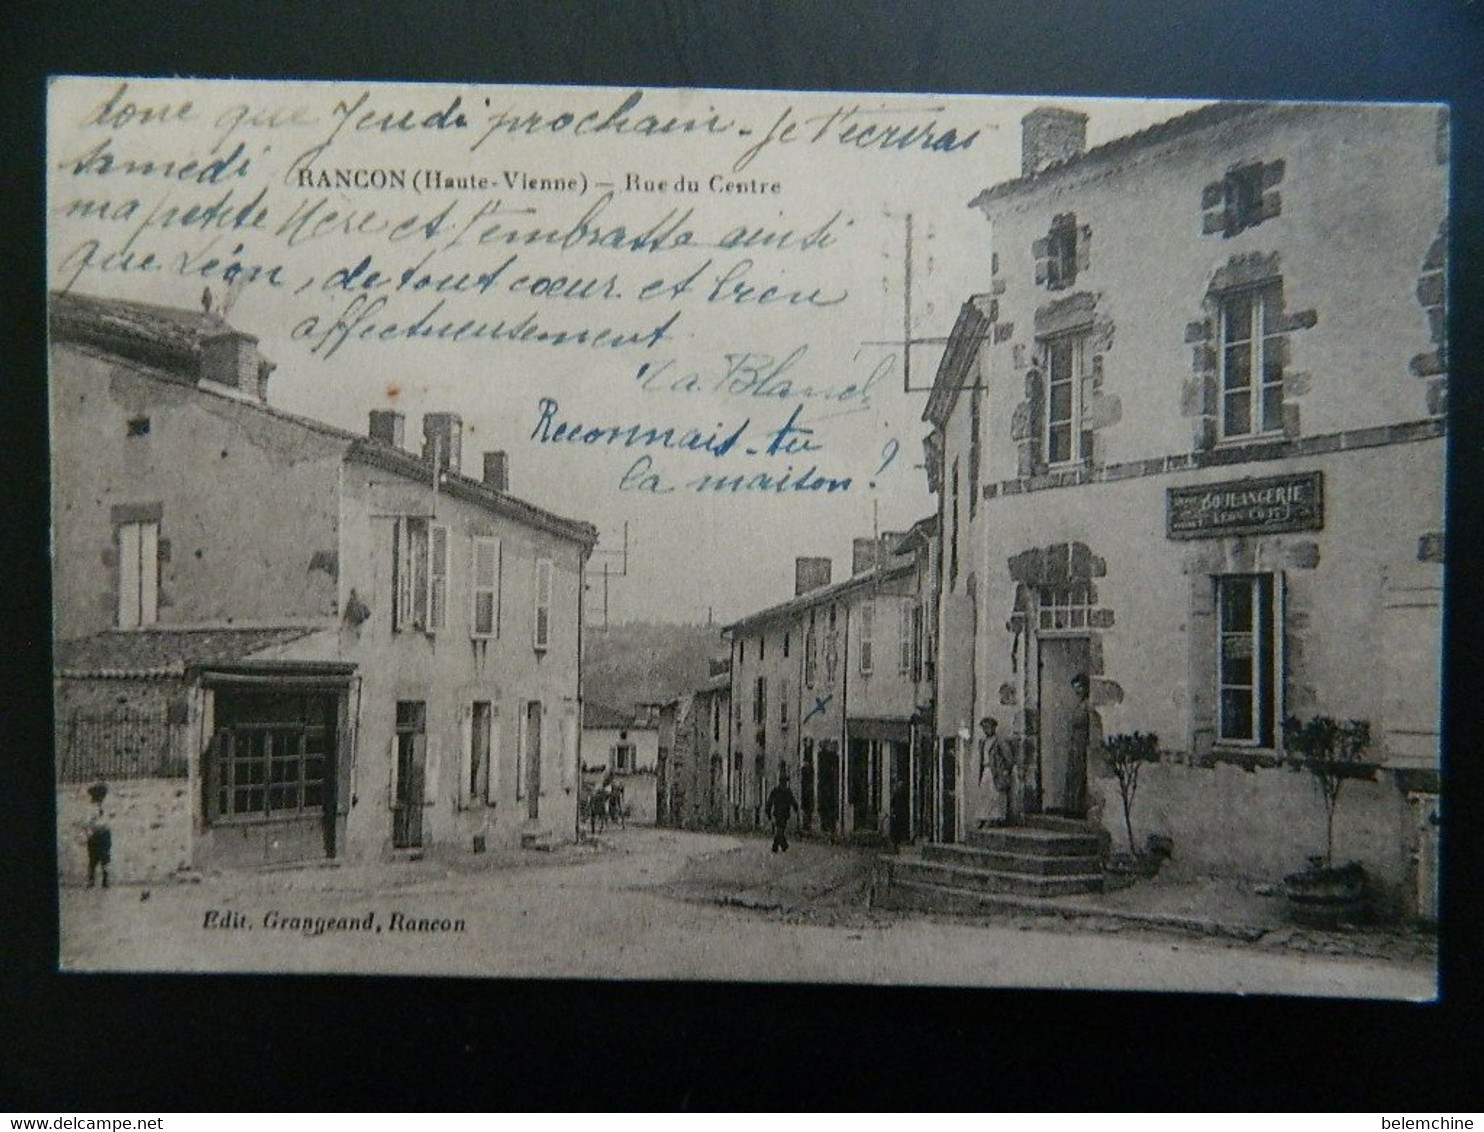 donc que Jeudi prochain - Je t'écrirai
samedi
RANCON (Haute-Vienne) — Rue du Centre
ma petite Mère et t'embrasse ainsi
que Léon, de tout cœur et bien
affectueusement
Ta Blanch
Reconnais-tu
la maison?
BOULANGERIE
LÉON
Edit. Grangeand, Rancon
www.delcampe.net
belemchine